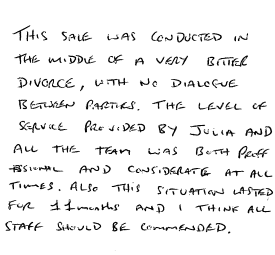 THIS SALE WAS CONDUCTED IN
THE MIDDLE OF A VERY BITTER
DIVORCE, WITH NO DIALOGUE
BETWEEN PARTIES. THE LEVEL OF
SERVICE PROVIDED BY JULIA AND
ALL THE TEAM WAS BOTH PROFF
ESSIONAL AND CONSIDERATE AT ALL
TIMES. ALSO THIS SITUATION LASTED
FOR 11 months AND I THINK ALL
STAFF SHOULD BE COMMENDED.